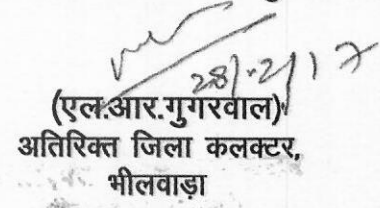 28/2/17
(एल.आर.गुगरवाल)
अतिरिक्त जिला कलक्टर,
भीलवाड़ा